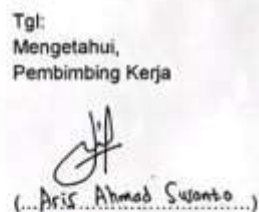 Tgl:
Mengetahui,
Pembimbing Kerja
(...Aris Ahmad Susanto...)